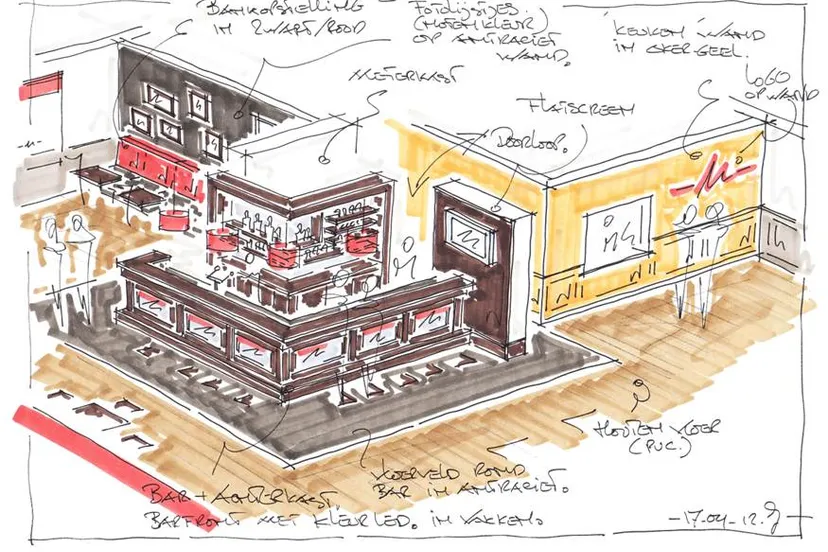 BANKOPSTELLING
IN ZWART/ROOD
FOTOLIJSTJES.
(NOTEN KLEUR)
OP ANTRACIET
WAND.
KEUKEN WAND
IN OKERGEEL.
METERKAST
LOGO
OP WAND
FLATSCREEN
DOORLOOP.
HOUTEN VLOER
(PVC.)
VLOERVELD ROND
BAR IN ANTRACIET.
BAR + ACHTERKAST.
BARFRONT MET KLEURLED. IN VAKKEN.
-17.04-12.